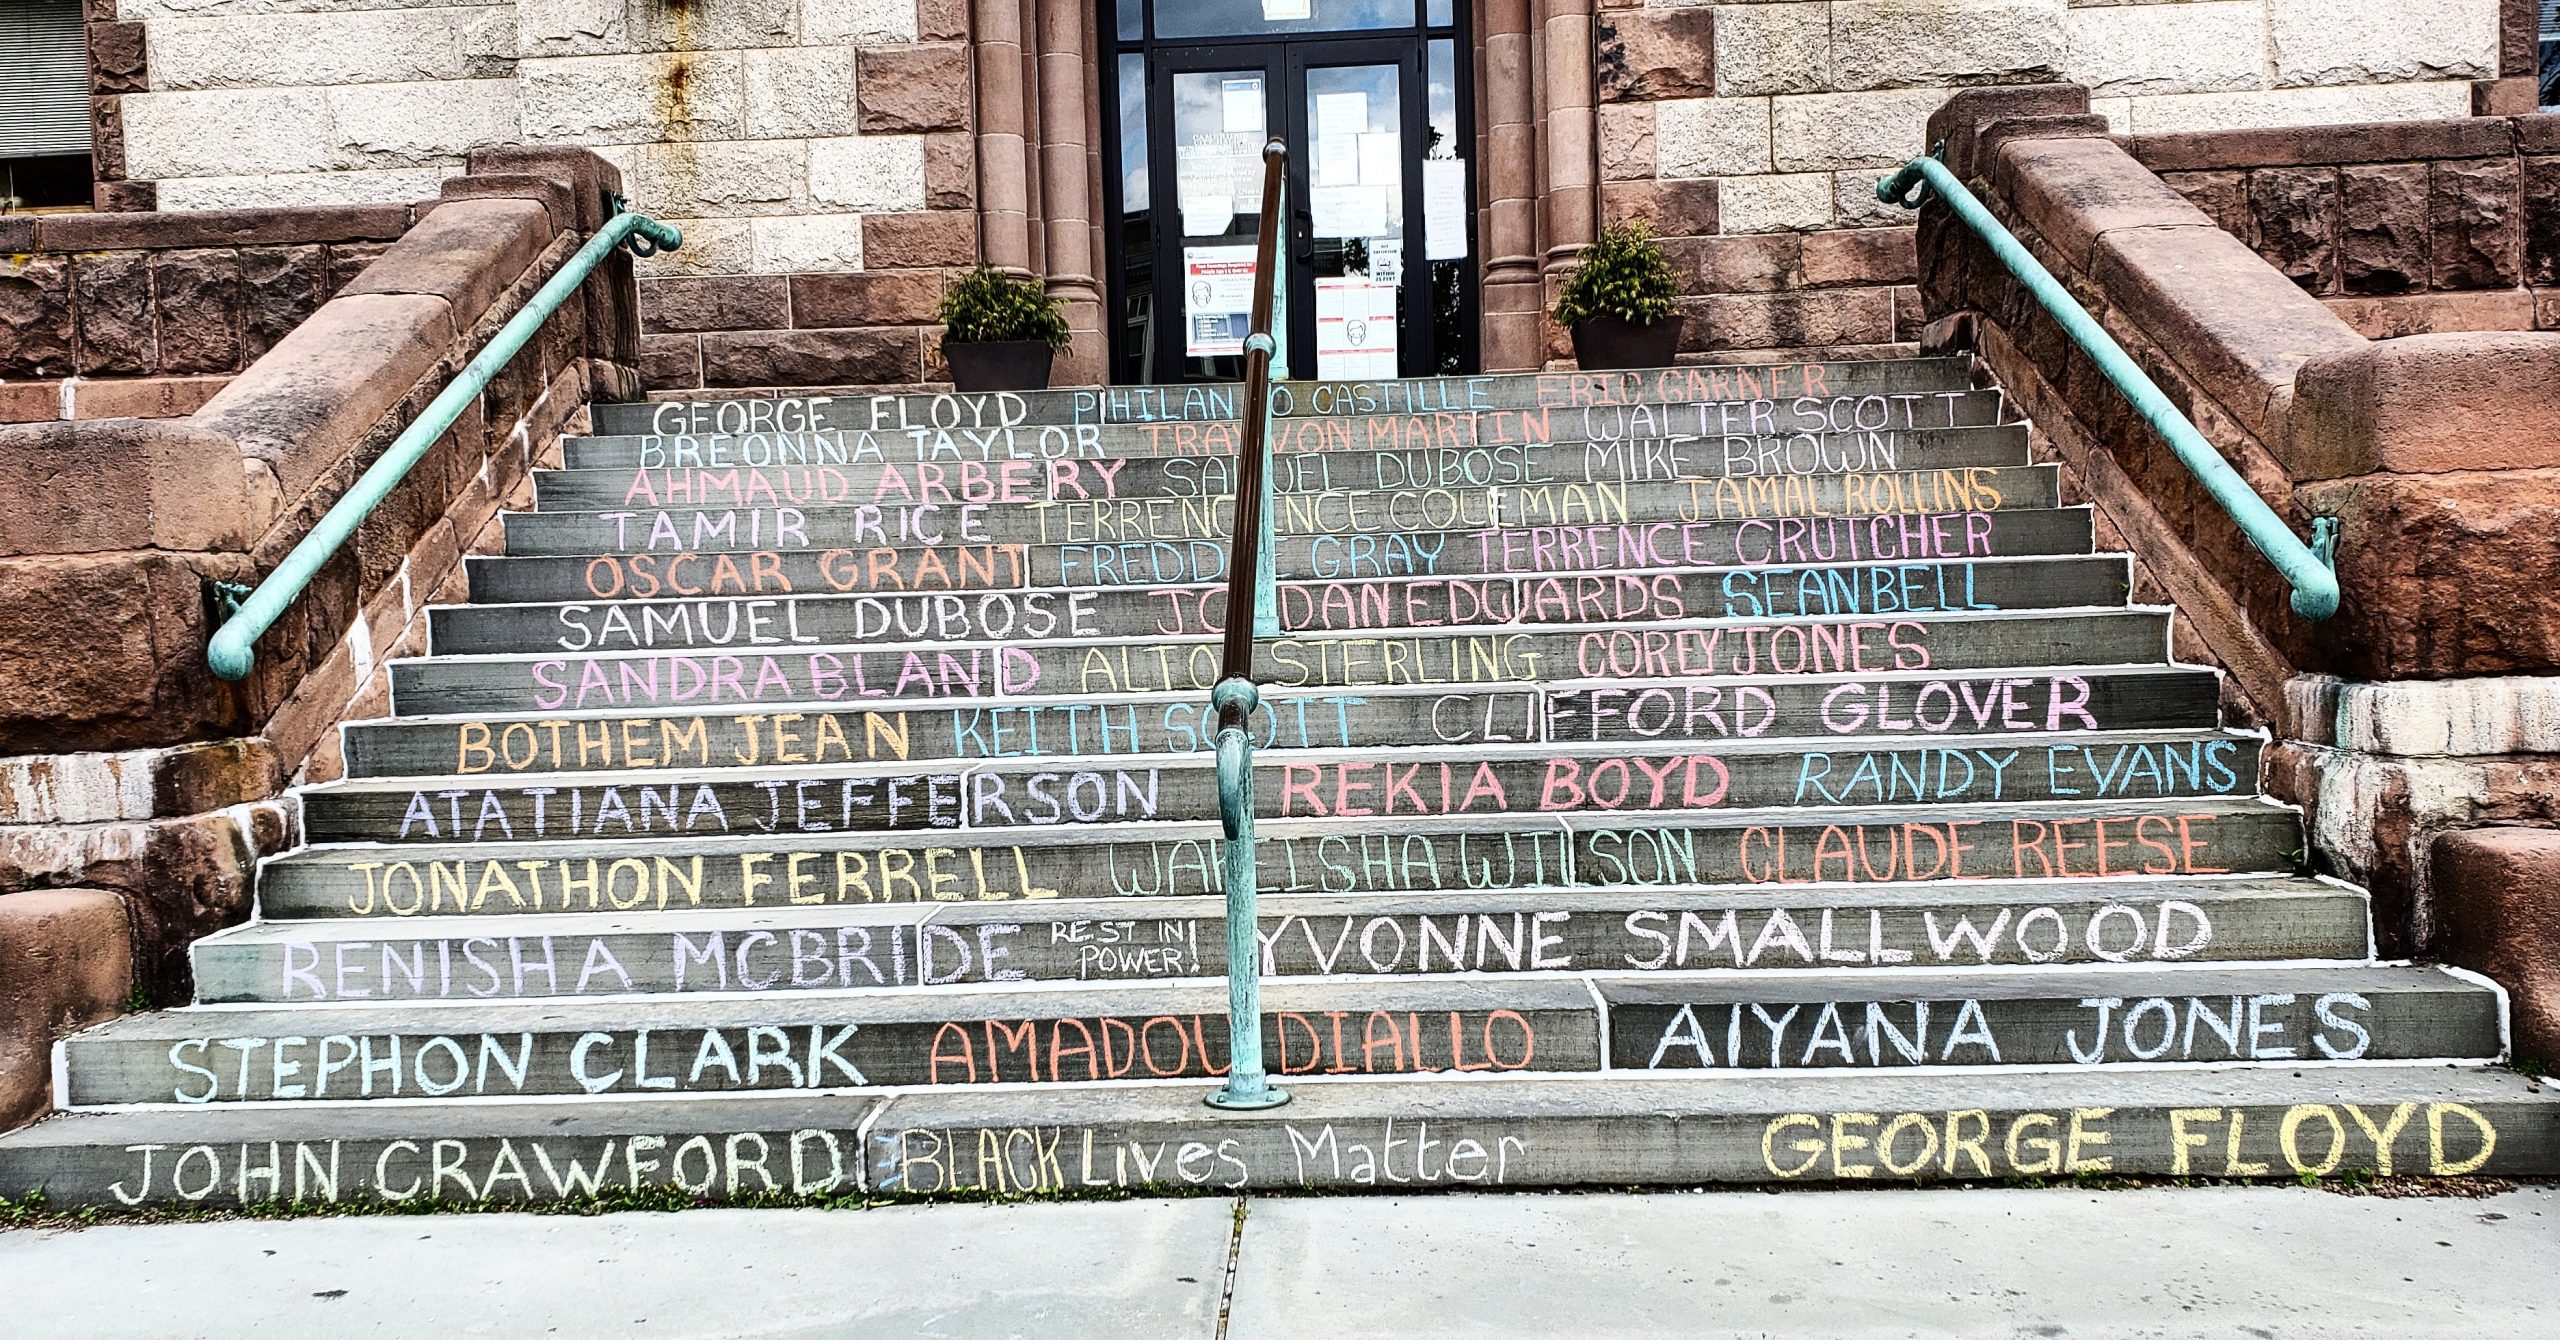 CAMBRIDGE
CITY HALL
NO SMOKING
WITHIN
25 FEET
GEORGE FLOYD PHILANDO CASTILLE ERIC GARNER
BREONNA TAYLOR TRAYVON MARTIN WALTER SCOTT
AHMAUD ARBERY SAMUEL DUBOSE MIKE BROWN
TAMIR RICE COLEMAN JAMAL ROLLINS
OSCAR GRANT FREDDIE GRAY TERRENCE CRUTCHER
SAMUEL DUBOSE JORDAN EDWARDS SEAN BELL
SANDRA BLAND ALTON STERLING COREY JONES
BOTHEM JEAN KEITH SCOTT CLIFFORD GLOVER
ATATIANA JEFFERSON REKIA BOYD RANDY EVANS
JONATHON FERRELL WAKEISHA WILSON CLAUDE REESE
RENISHA MCBRIDE REST IN POWER! YVONNE SMALLWOOD
STEPHON CLARK AMADOU DIALLO AIYANA JONES
JOHN CRAWFORD BLACK Lives Matter GEORGE FLOYD